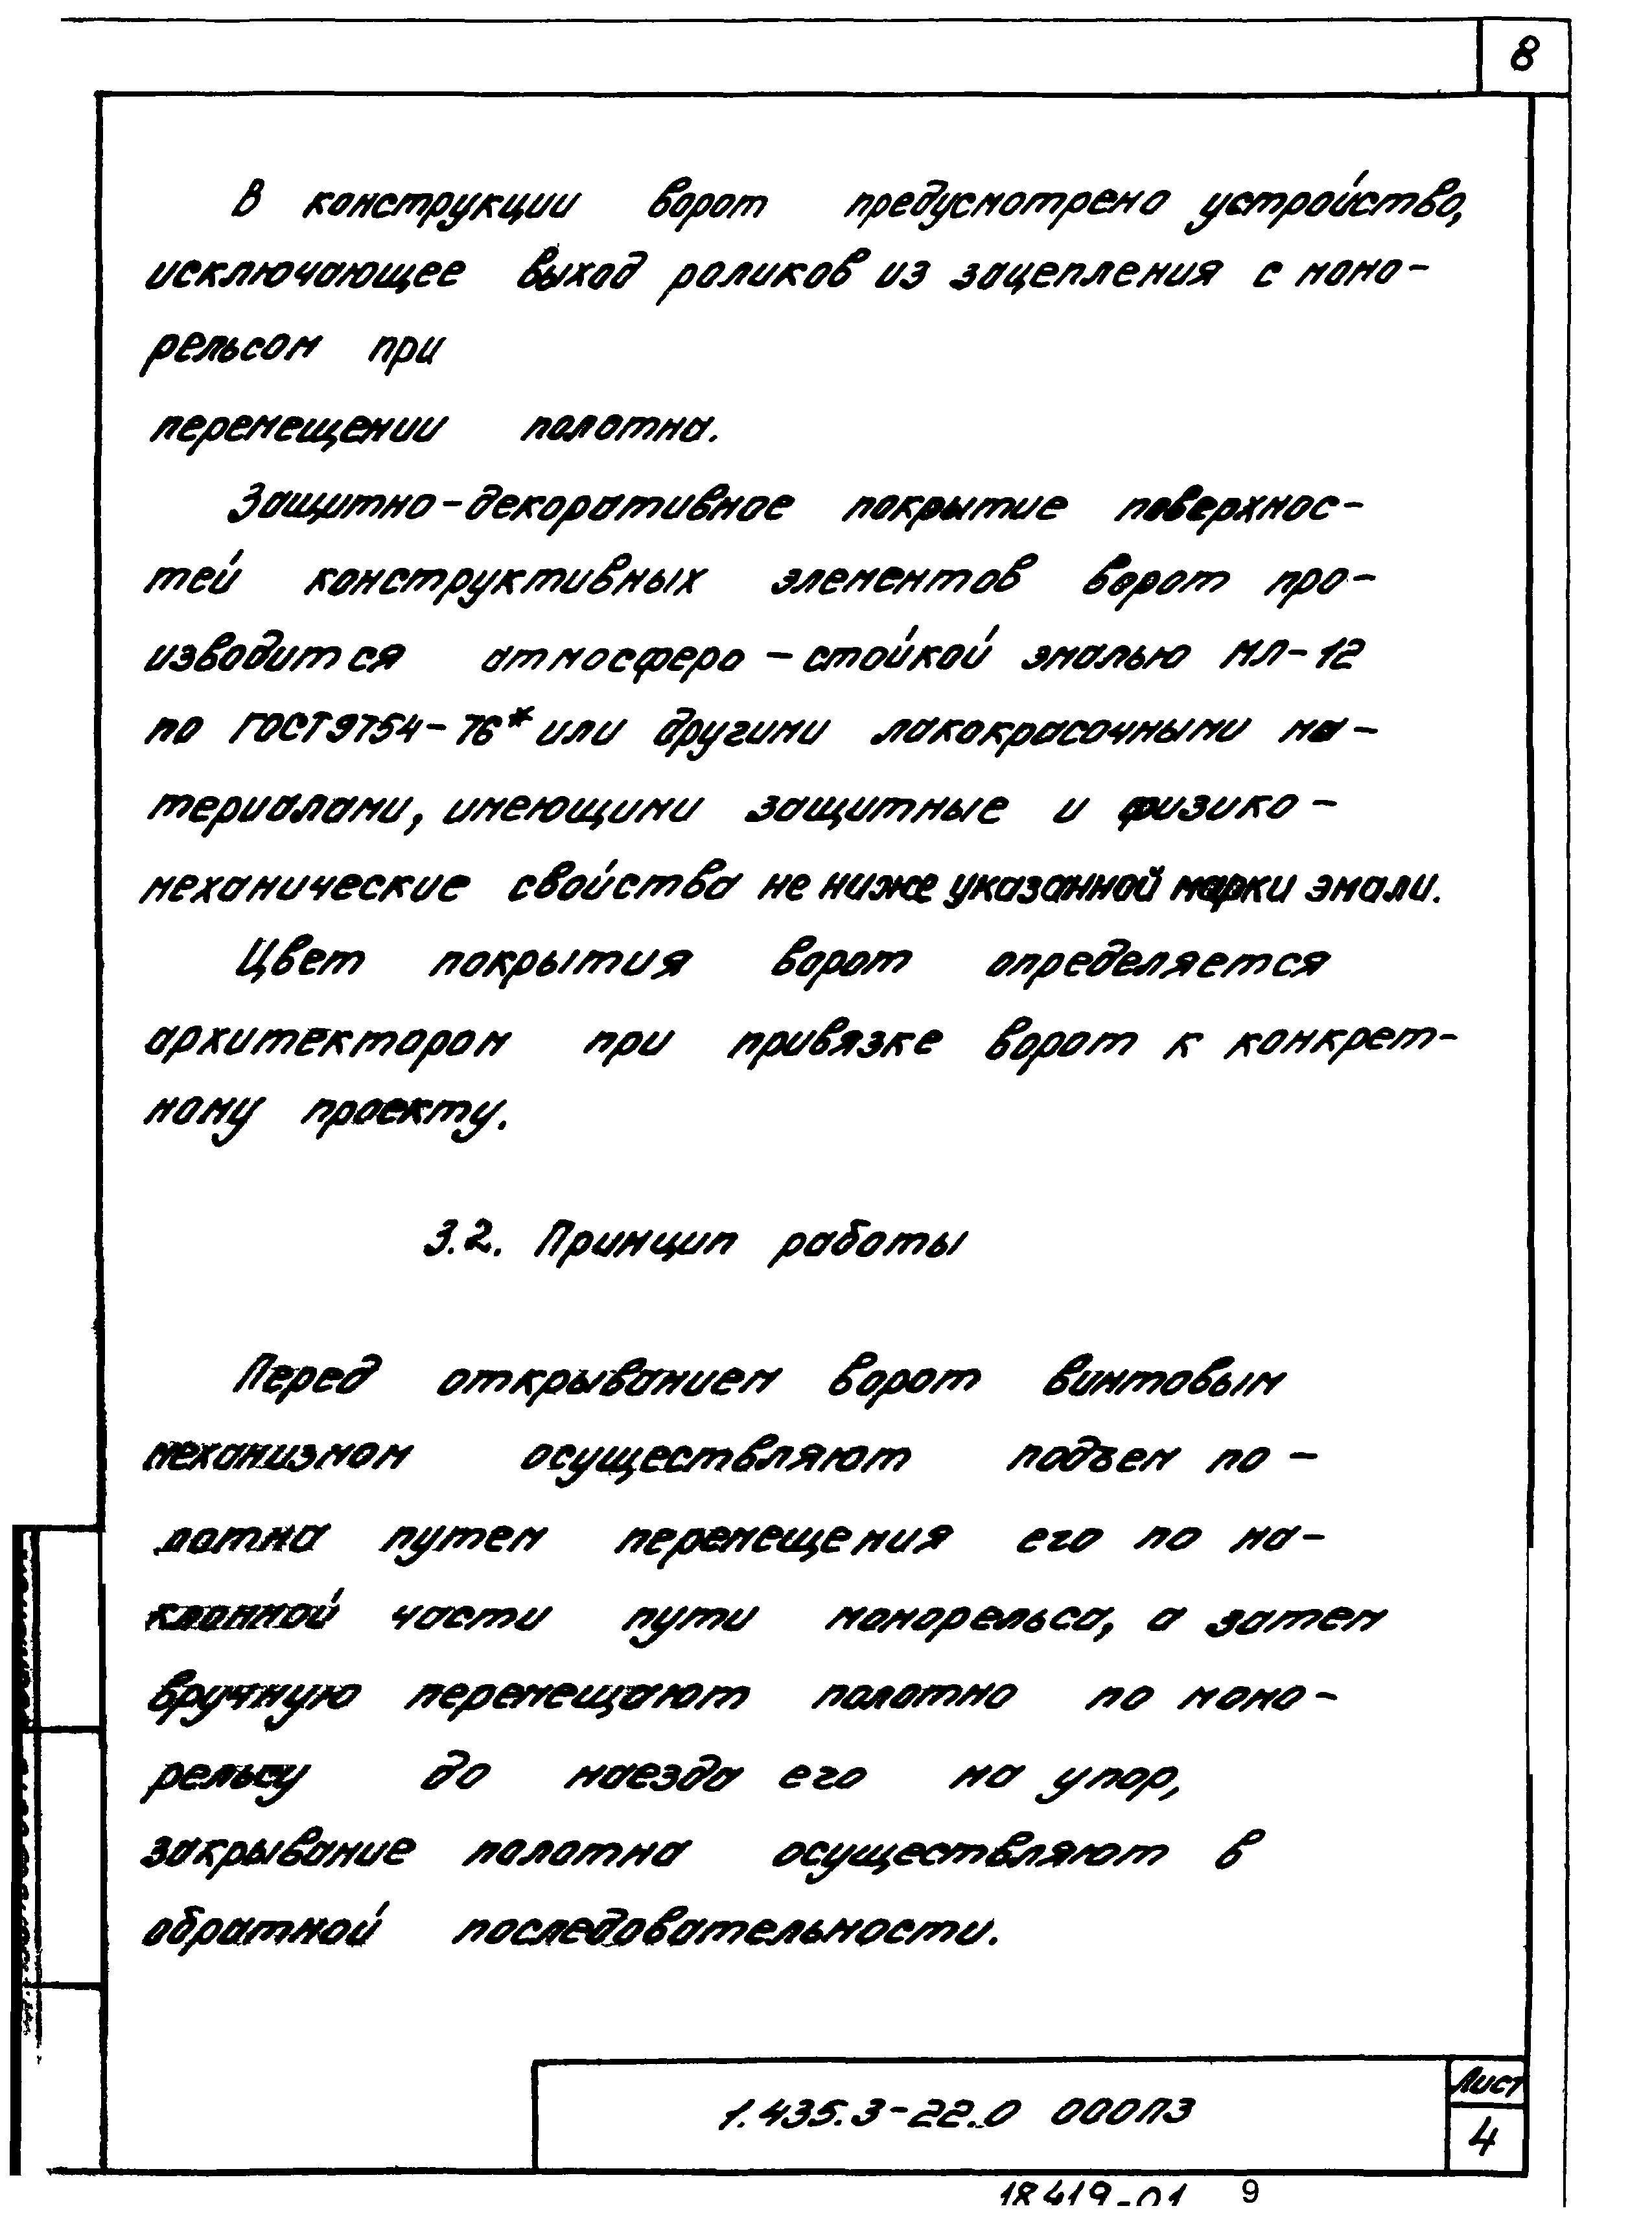 8
В конструкции ворот предусмотрено устройство,
исключающее выход роликов из зацепления с моно-
рельсом при
перемещении полотна.
Защитно-декоративное покрытие поверхнос-
тей конструктивных элементов ворот про-
изводится атмосферо-стойкой эмалью МЛ-12
по ГОСТ 9754-76* или другими лакокрасочными ма-
териалами, имеющими защитные и физико-
механические свойства не ниже указанной марки эмали.
Цвет покрытия ворот определяется
архитектором при привязке ворот к конкрет-
ному проекту.
3.2. Принцип работы
Перед открыванием ворот винтовым
механизмом осуществляют подъем по-
лотна путем перемещения его по на-
клонной части пути монорельса, а затем
вручную перемещают полотно по моно-
рельсу до наезда его на упор,
закрывание полотна осуществляют в
обратной последовательности.
1.435.3-22.0 000ПЗ
Лист
4
18419-01 9